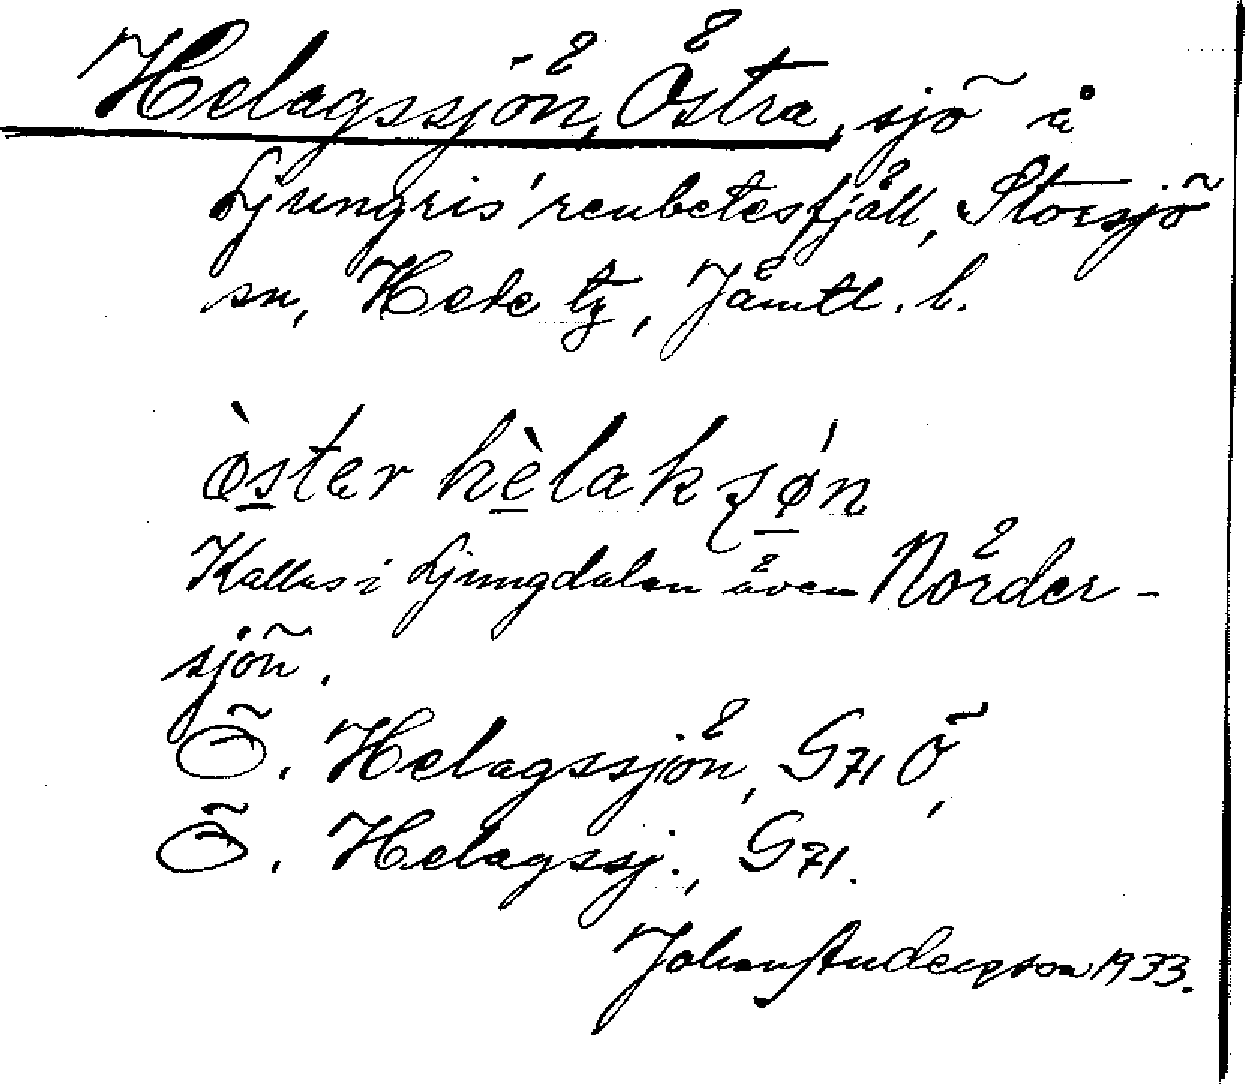 Helagssjön, Östra, sjö å
Ljungris' renbetesfjäll, Storsjö
sn, Hede tg, Jämtl. l.
òster hèlaksǿn
Kallas i Ljungdalen även Nörder-
sjön.
Ö. Helagssjön, G71 Ö,
Ö. Helagssj., G71.
Johan Anderson 1933.